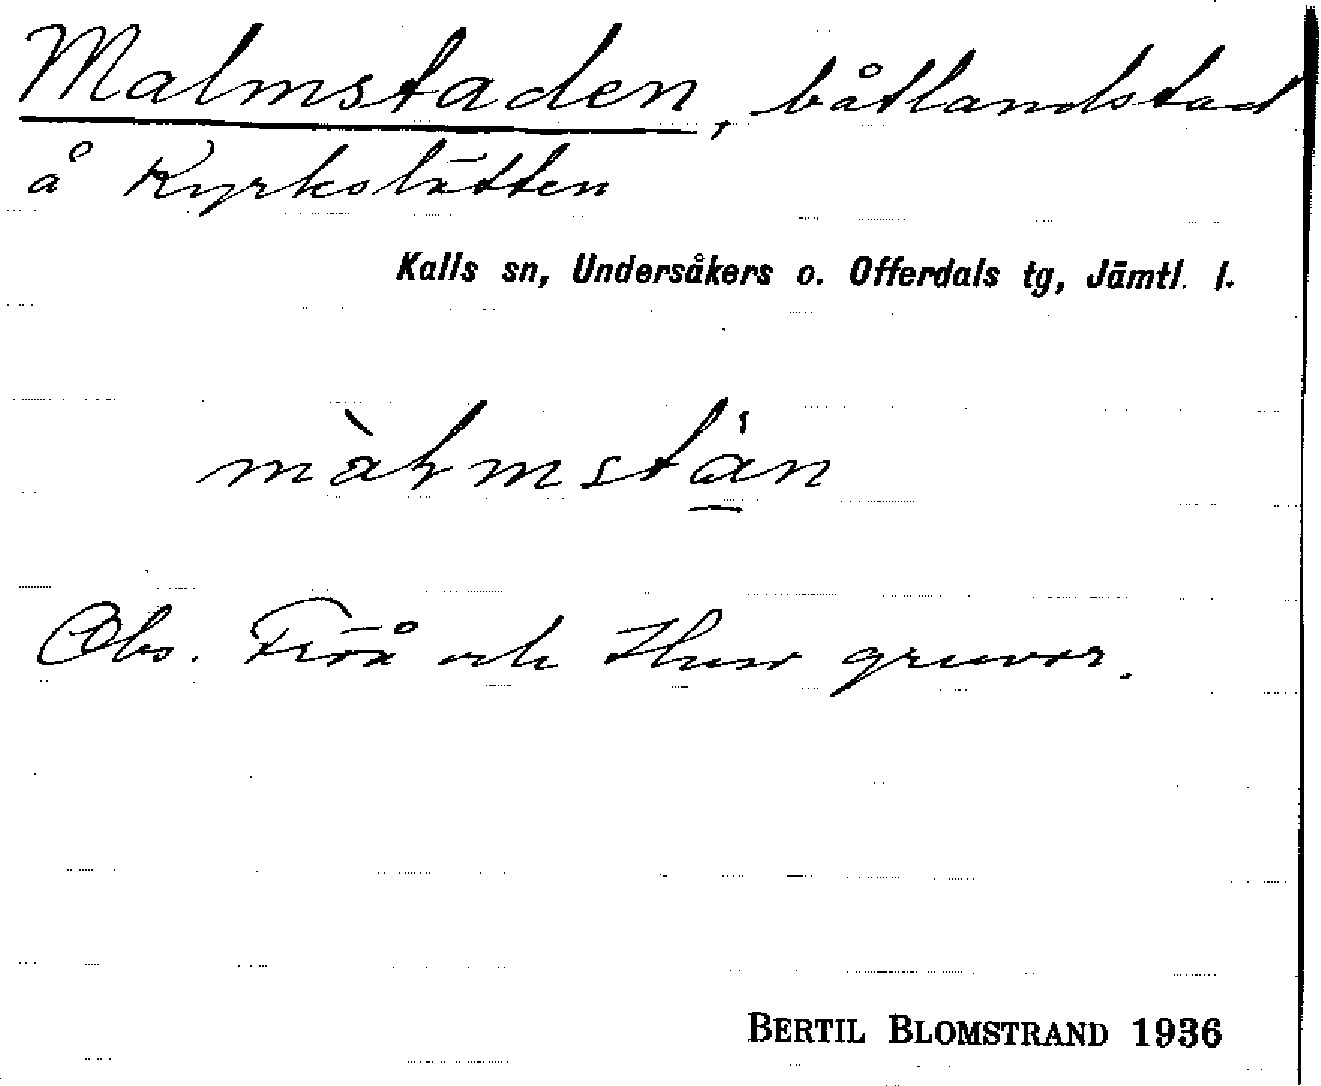 Malmstaden, båtlandstad
å Kyrkslätten
Kalls sn, Undersåkers o. Offerdals tg, Jämtl. l.
màlmstá̱n
Obs. Fröå och Huså gruvor.
BERTIL BLOMSTRAND 1936